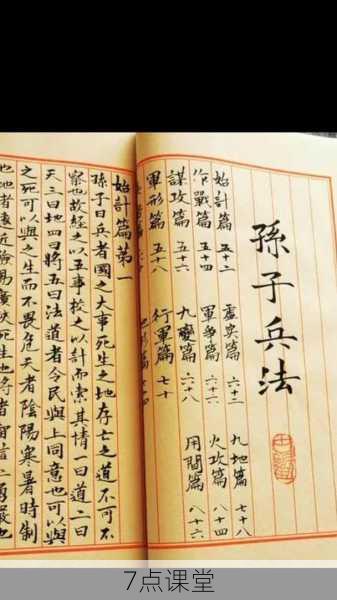 孫子兵法
始計篇 五十二
作戰篇 五十四
謀攻篇 五十六
軍形篇 五十八
虛實篇 六十三
軍爭篇 六十六
九變篇 六十八
行軍篇 七十
地形篇 七十四
九地篇 七十八
火攻篇 八十四
用間篇 八十六
始計篇第一
孫子曰兵者國之大事死生之地存亡之道不可不
察也故經之以五事校之以計而索其情一曰道二曰
天三曰地四曰將五曰法道者令民與上同意也可以與
之死可以與之生而不畏危天者陰陽寒暑時制
也地者遠近險易廣狹死生也將者智信仁勇嚴也
7点课堂